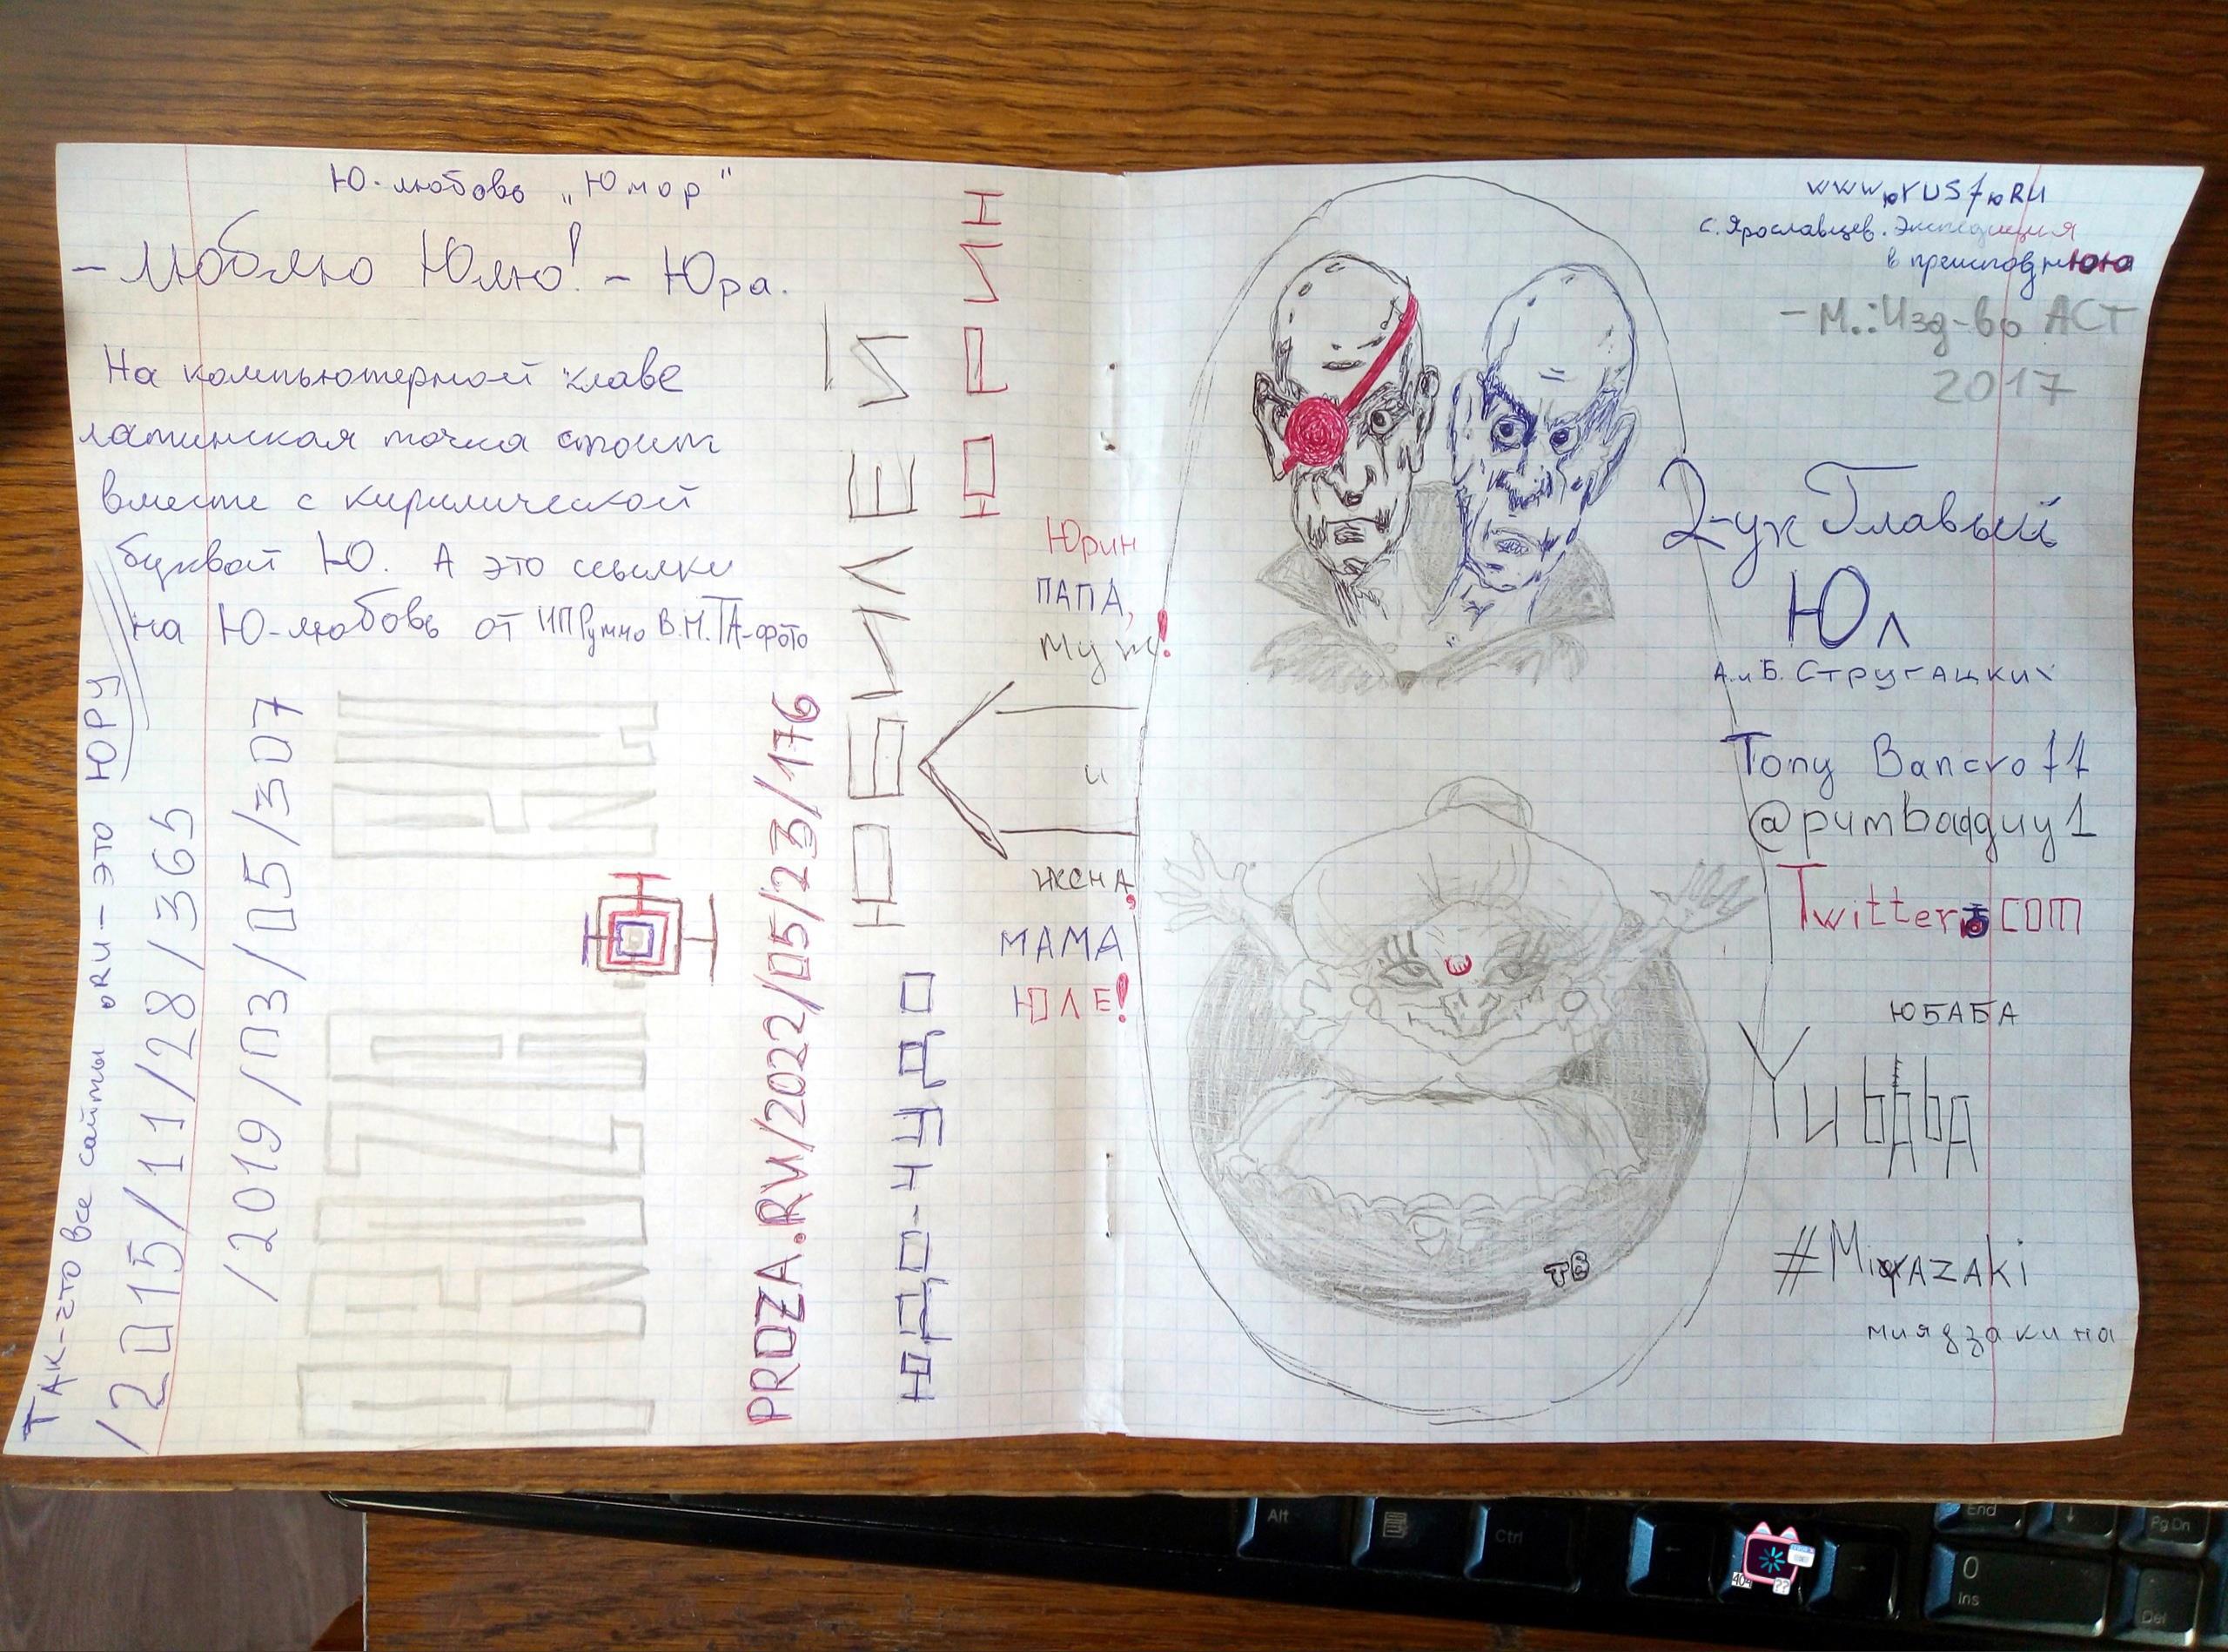 Ю-любовь „Юмор"
- Люблю Юлю! - Юра.
На компьютерной клаве
латинская точка стоит
вместе с кирилической
буквой Ю. А это ссылки
на Ю-любовь от ИП Румно В.Н. ТА-фото
Так-что все сайты юRU - это ЮРУ
/2015/11/28/365
/2019/03/05/307
PROZA.RU/2022/05/23/176
ЮДО-ЧУДО
ЮБИЛЕЙ
ЮРИН
Юрин
ПАПА,
Муж!
и
жена,
МАМА
ЮЛЕ!
wwwюrus7юRU
С. Ярославцев. Экспедиция
в преисподнююю
- М.: Изд-во АСТ
2017
2-ух Главый
Юл
А. и Б. Стругацких
Tony Bancroft
@pumbaaguy1
Twitter.com
ЮБАБА
YubAbA
#MiyAZAKi
миядзакина
TB
Alt
Ctrl
End
Pg Dn
0
Ins
Del
404
??